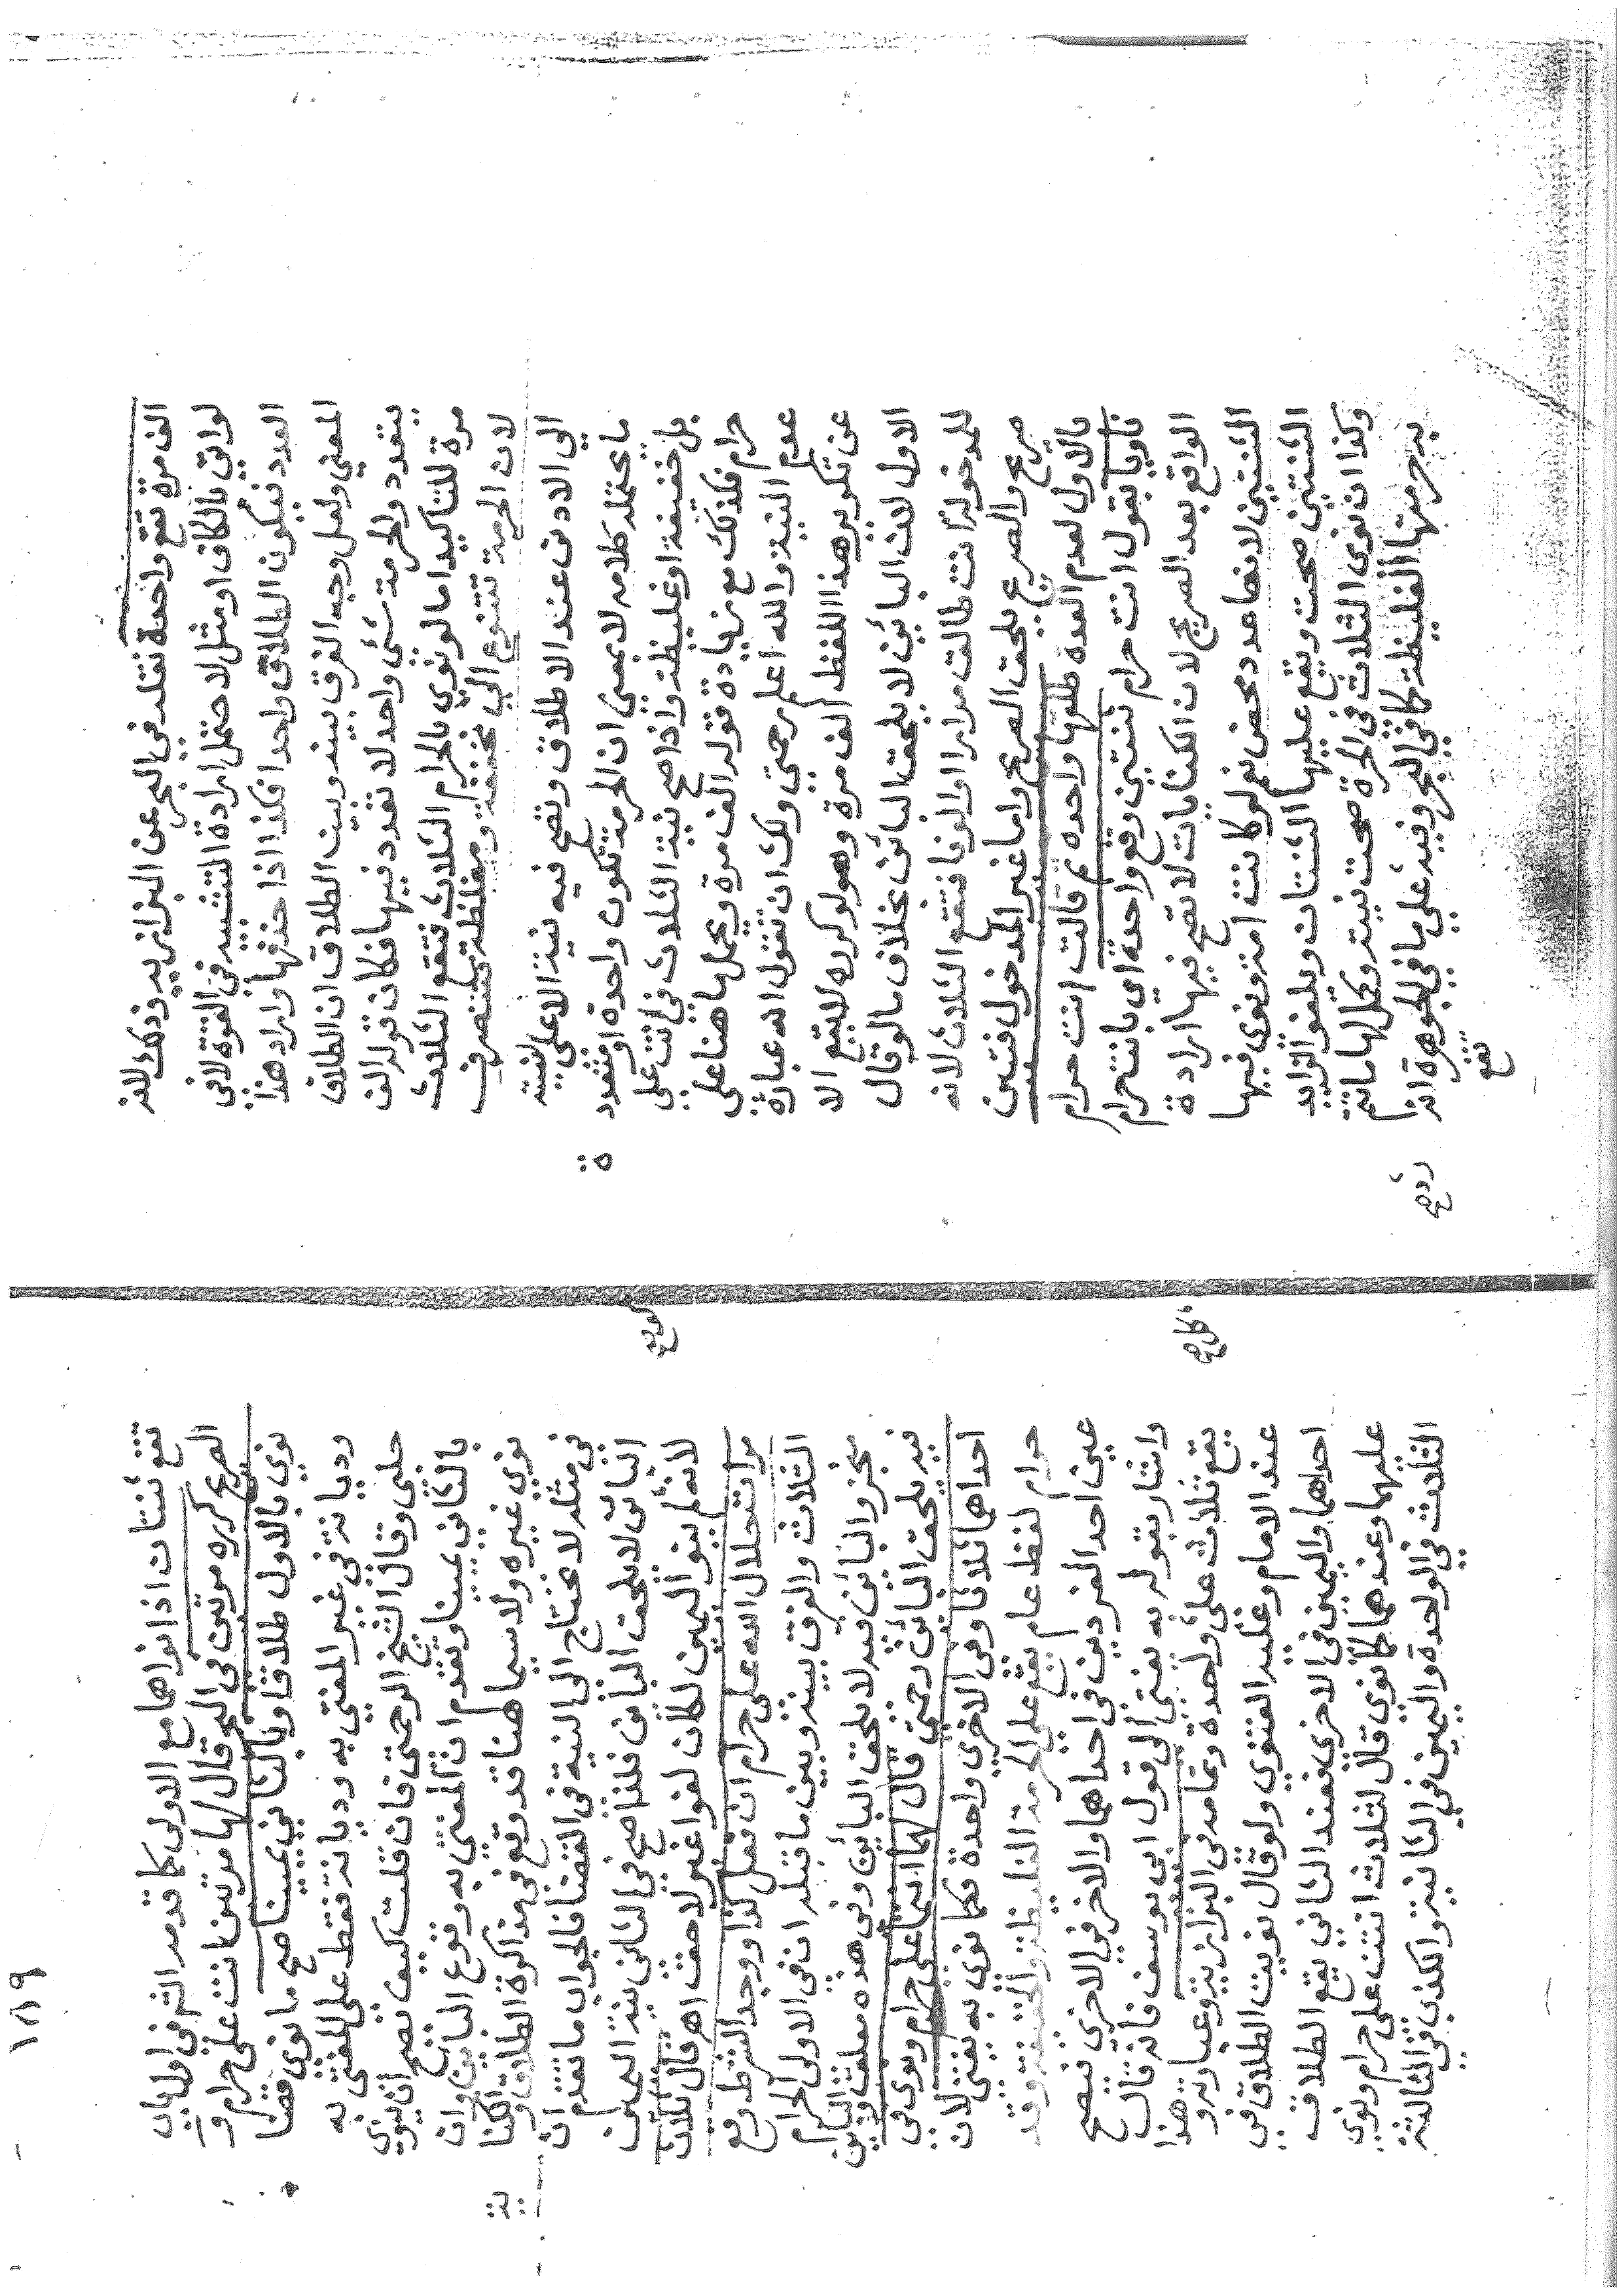 الف مرة تقع واحدة نقله في البحر عن البزازيه وذكر للذ
لواتي بالكاف او مثل لاحتمل ارادة التشبيه في القوة لا في
العدد فيكون الطلاق واحدا فكذا اذا حذفها واراد هذا
المعني ولعل وجه الفرق بينه وبين الطلاق ان الطلاق
يتعدد والحرمة شئ واحد لا تعدد فيها فكان قوله الف
مرة للتاكيد اما لو نوي بالحرام الثلاث فتقع الثلاث
لان الحرمة تتنوع الي مخففة ومغلظة فتنصرف
الي الادنى عند الاطلاق وتصح فيه نية الاعلى
ما يحتمله كلامه لا بمعنى ان الحرمة تكون واحدة او متعدد
بل خفيفة او غليظة واذا صح نية الثلاث في انت علي
حرام فكذلك مع زيادة قوله الف مرة ويحملها هنا علي
عدم النية والله اعلم رحمتي ولك ان تقول انه عبارة
عن تكرير هذا اللفظ الف مرة وهو لو كرره لا يقع الا
الاول لان البائن لا يلحق البائن بخلاف ما لو قال
للمدخولة انت طالق مرارا او الوفا فتقع الثلاث لانه
صريح والصريح يلحق الصريح واما غير المدخول فتبين
بالاول لعدم العدة طلقها واحدة ثم قالت انت حرام
ناويا بقول انت حرام ثنتين وقع واحدة اي بانت حرام
الواقع بعد الصريح لان الكنايات لا تصح فيها ارادة
الثنتين لانها عدد محض نعم لو كانت امة ونوى فيها
الثنتين صحت ويقع عليها الثنتان ويلغو الزايد
وكذا ان نوى الثلاث في الحرة صحت نيته وكمل لها مائة
به حرمتها الغليظة كما في البحر وفيه علي ما في الجوهرة انه
تقع
تقع ثنتان اذا نواها مع الاولى كما قدمه الشر في اول باب
الصريح كرره مرتين في البحر قال لها مرتين انت علي حرام و
نوي بالاول طلاقا وبالثاني يمينا صح ما نوى قضا
وديانة في غير المفتى به وديانة فقط على المفتى به
حلبي وقال الشيخ الرحمتي فان قلت كيف تصح ان ينوي
بالثاني يمينا وتقدم ان المفتى به وقوع البائن وان
نوي غيره ولا سيما هنا قد وقع في مذاكرة الطلاق والكنا
في مثله لا تحتاج الى النية في القضا فالجواب ما تقدم ان
البائن لا يلحق البائن فلذا صح في الثاني نية اليمين
لانه لم ينو اليمين لكان لغوا غير لاحق اهـ قال ثلاث
مرات حلال الله علي حرام ان فعل كذا ووجد الشرط وقع
الثلاث والفرق بينه وبين ما قبله ان في الاولى الحرام
منجز والبائن فيه لا يلحق البائن وفي هذه معلق والبائن
فيه يلحق البائن رحمتي قال لهما انتما علي حرام ونوى في
احداهما ثلاثا وفي الاخري واحدة فكما نوى به يفتى لان
حرام لفظ عام يقع على الحرمة الغليظة والخفيفة وقد
عين احد الفردين في احداهما والاخر في الاخري فيصح
واشار بقوله به يفتي الى قول ابي يوسف فانه قال
يقع ثلاث علي واحدة وتمامه في البزازية وعبارته هذا
عند الامام وعليه الفتوي ولو قال نويت الطلاق في
احداهما واليمين في الاخرى فعند الثاني يقع الطلاق
عليهما وعندهما كما نوى قال لثلاث انتن علي حرام ونوى
الثلاث في الواحدة واليمين في الثانية والكذب في الثالثة
١٨٩